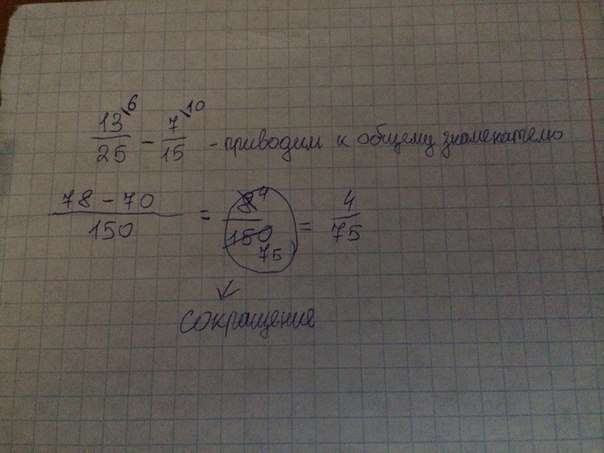 13⁶/25 − 7¹⁰/15 - приводим к общему знаменателю
78 − 70/150 = 8⁴/150 75 = 4/75
сокращение